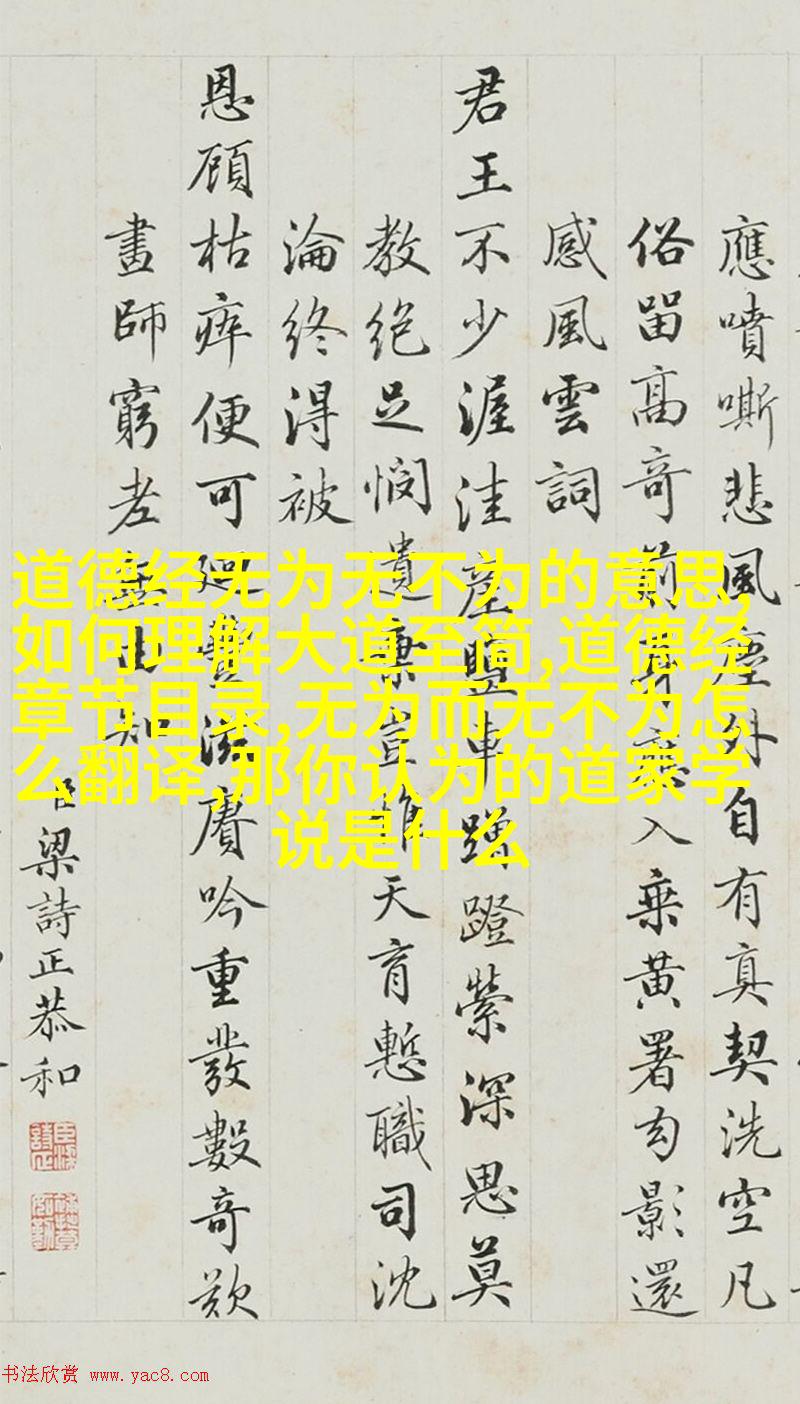 道德经无为无不为的意思,
如何理解大道至简,道德经
章节目录,无为而无不为怎
么翻译,那你认为的道家学
说是什么
應噴嘶悲風塵外自有真契洗空凡
俗留高奇前身應入乗黃署勾影還
感風雲詞
君王不少渥洼産鹽車蹭蹬縈深思莫
教絶足憫遺棄天育慙職司沈
淪終得被
恩顧枯瘁便可廻豐滋賡吟重發數奇歎
畫師窮老無由知
臣梁詩正恭和
书法欣赏 www.yac8.com